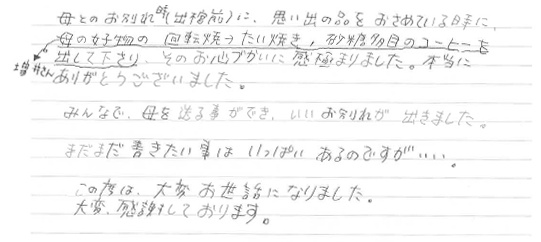 母とのお別れ時(出棺前)に、思い出の品をおさめている時に、
母の好物の回転焼→たい焼き,砂糖多目のコーヒーを
増井さん
出して下さり、そのお心づかいに感極まりました。本当に
ありがとうございました。
みんなで、母を送る事ができ、いいお別れが出きました。
まだまだ書きたい事はいっぱいあるのですが‥‥。
この度は、大変お世話になりました。
大変、感謝しております。